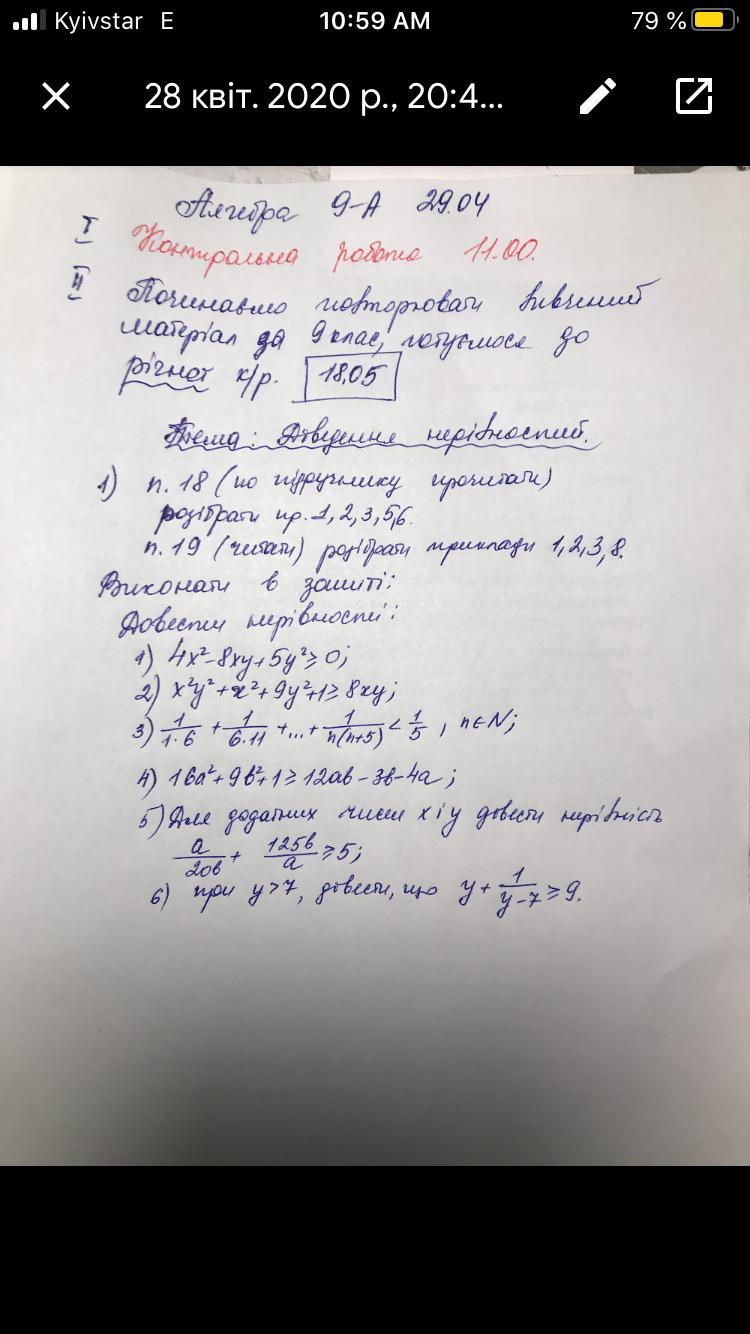 Kyivstar E 10:59 AM 79 %
28 квіт. 2020 р., 20:4...
Алгебра 9-А 29.04
I Контрольна робота 11.00.
II Починаємо повторювати вивчений
матеріал за 9 клас, готуємося до
річної к/р. 18.05
Тема: Доведення нерівностей.
1) п. 18 (по підручнику прочитати)
розібрати пр. 1, 2, 3, 5, 6.
п. 19 (читати) розібрати приклади 1, 2, 3, 8.
Виконати в зошиті:
Довести нерівності:
1) 4x²-8xy+5y²≥0;
2) x²y²+x²+9y²+1≥8xy;
3) 1/1·6 + 1/6·11 +...+ 1/n(n+5) < 1/5, n∈N;
4) 16a²+9b²+1≥12ab-3b-4a;
5) Для додатних чисел x і y довести нерівність
a/20b + 125b/a ≥5;
6) при y>7, довести, що y+ 1/y-7 ≥9.